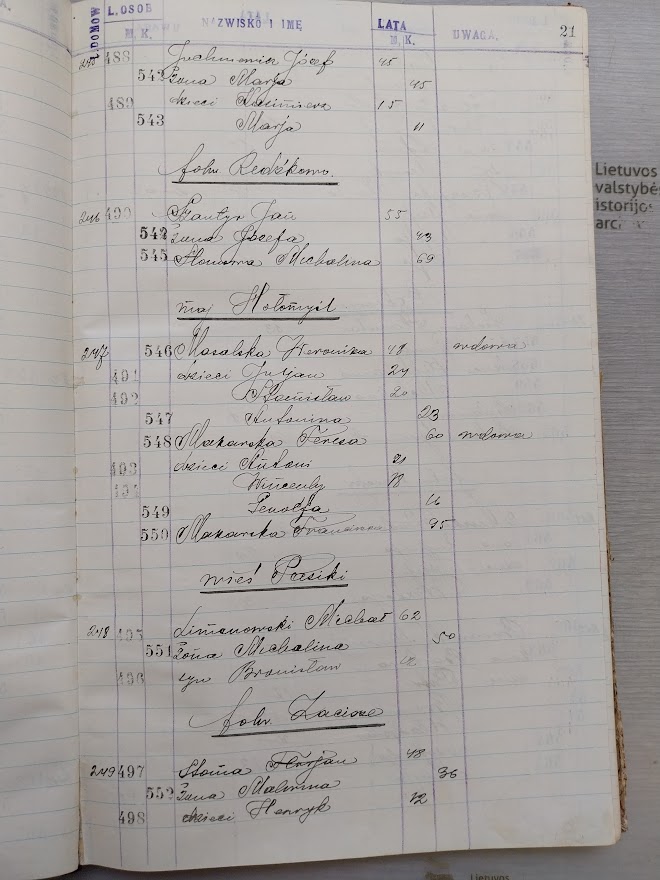 L. DOMÓW L. OSOB NAZWISKO I IMĘ LATA UWAGA. 21
M. K. M. K.
245 488 Józef 45
542 żona Marja 45
489 dzieci Kazimierz 15
543 Marja 11
folw. Redźkowo.
246 490 Jan 55
542 żona Józefa 43
545 Michalina 69
maj. Hołomyśl
247 546 Masalska Weronika 48 wdowa
491 dzieci Juljan 24
492 Stanisław 20
547 Antonina 23
548 Makarska Teresa 60 wdowa
493 dzieci Antoni 21
Wincenty 18
549 16
550 Makarska 95
wieś Pasiki
248 495 Limanowski Michał 62
551 żona Michalina 50
496 syn Bronisław
folw. Zacisze
249 497 Florjan 48
552 żona Malwina 36
498 dzieci Henryk 12
Lietuvos
valstybės
istorijos
Lietuvos